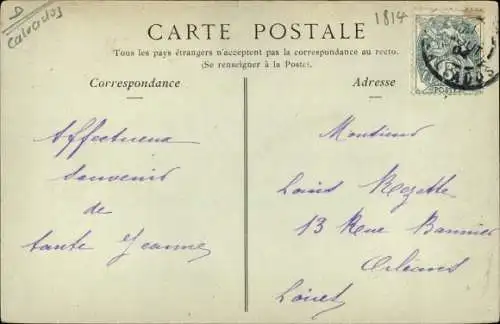 D
Calvados
1814
CARTE POSTALE
Tous les pays étrangers n'acceptent pas la correspondance au recto.
(Se renseigner à la Poste).
Correspondance
Adresse
Affectueux
souvenir
de
tante Jeanne
Monsieur
Louis Rozette
13 Rue Bannier
Orléans
Loiret